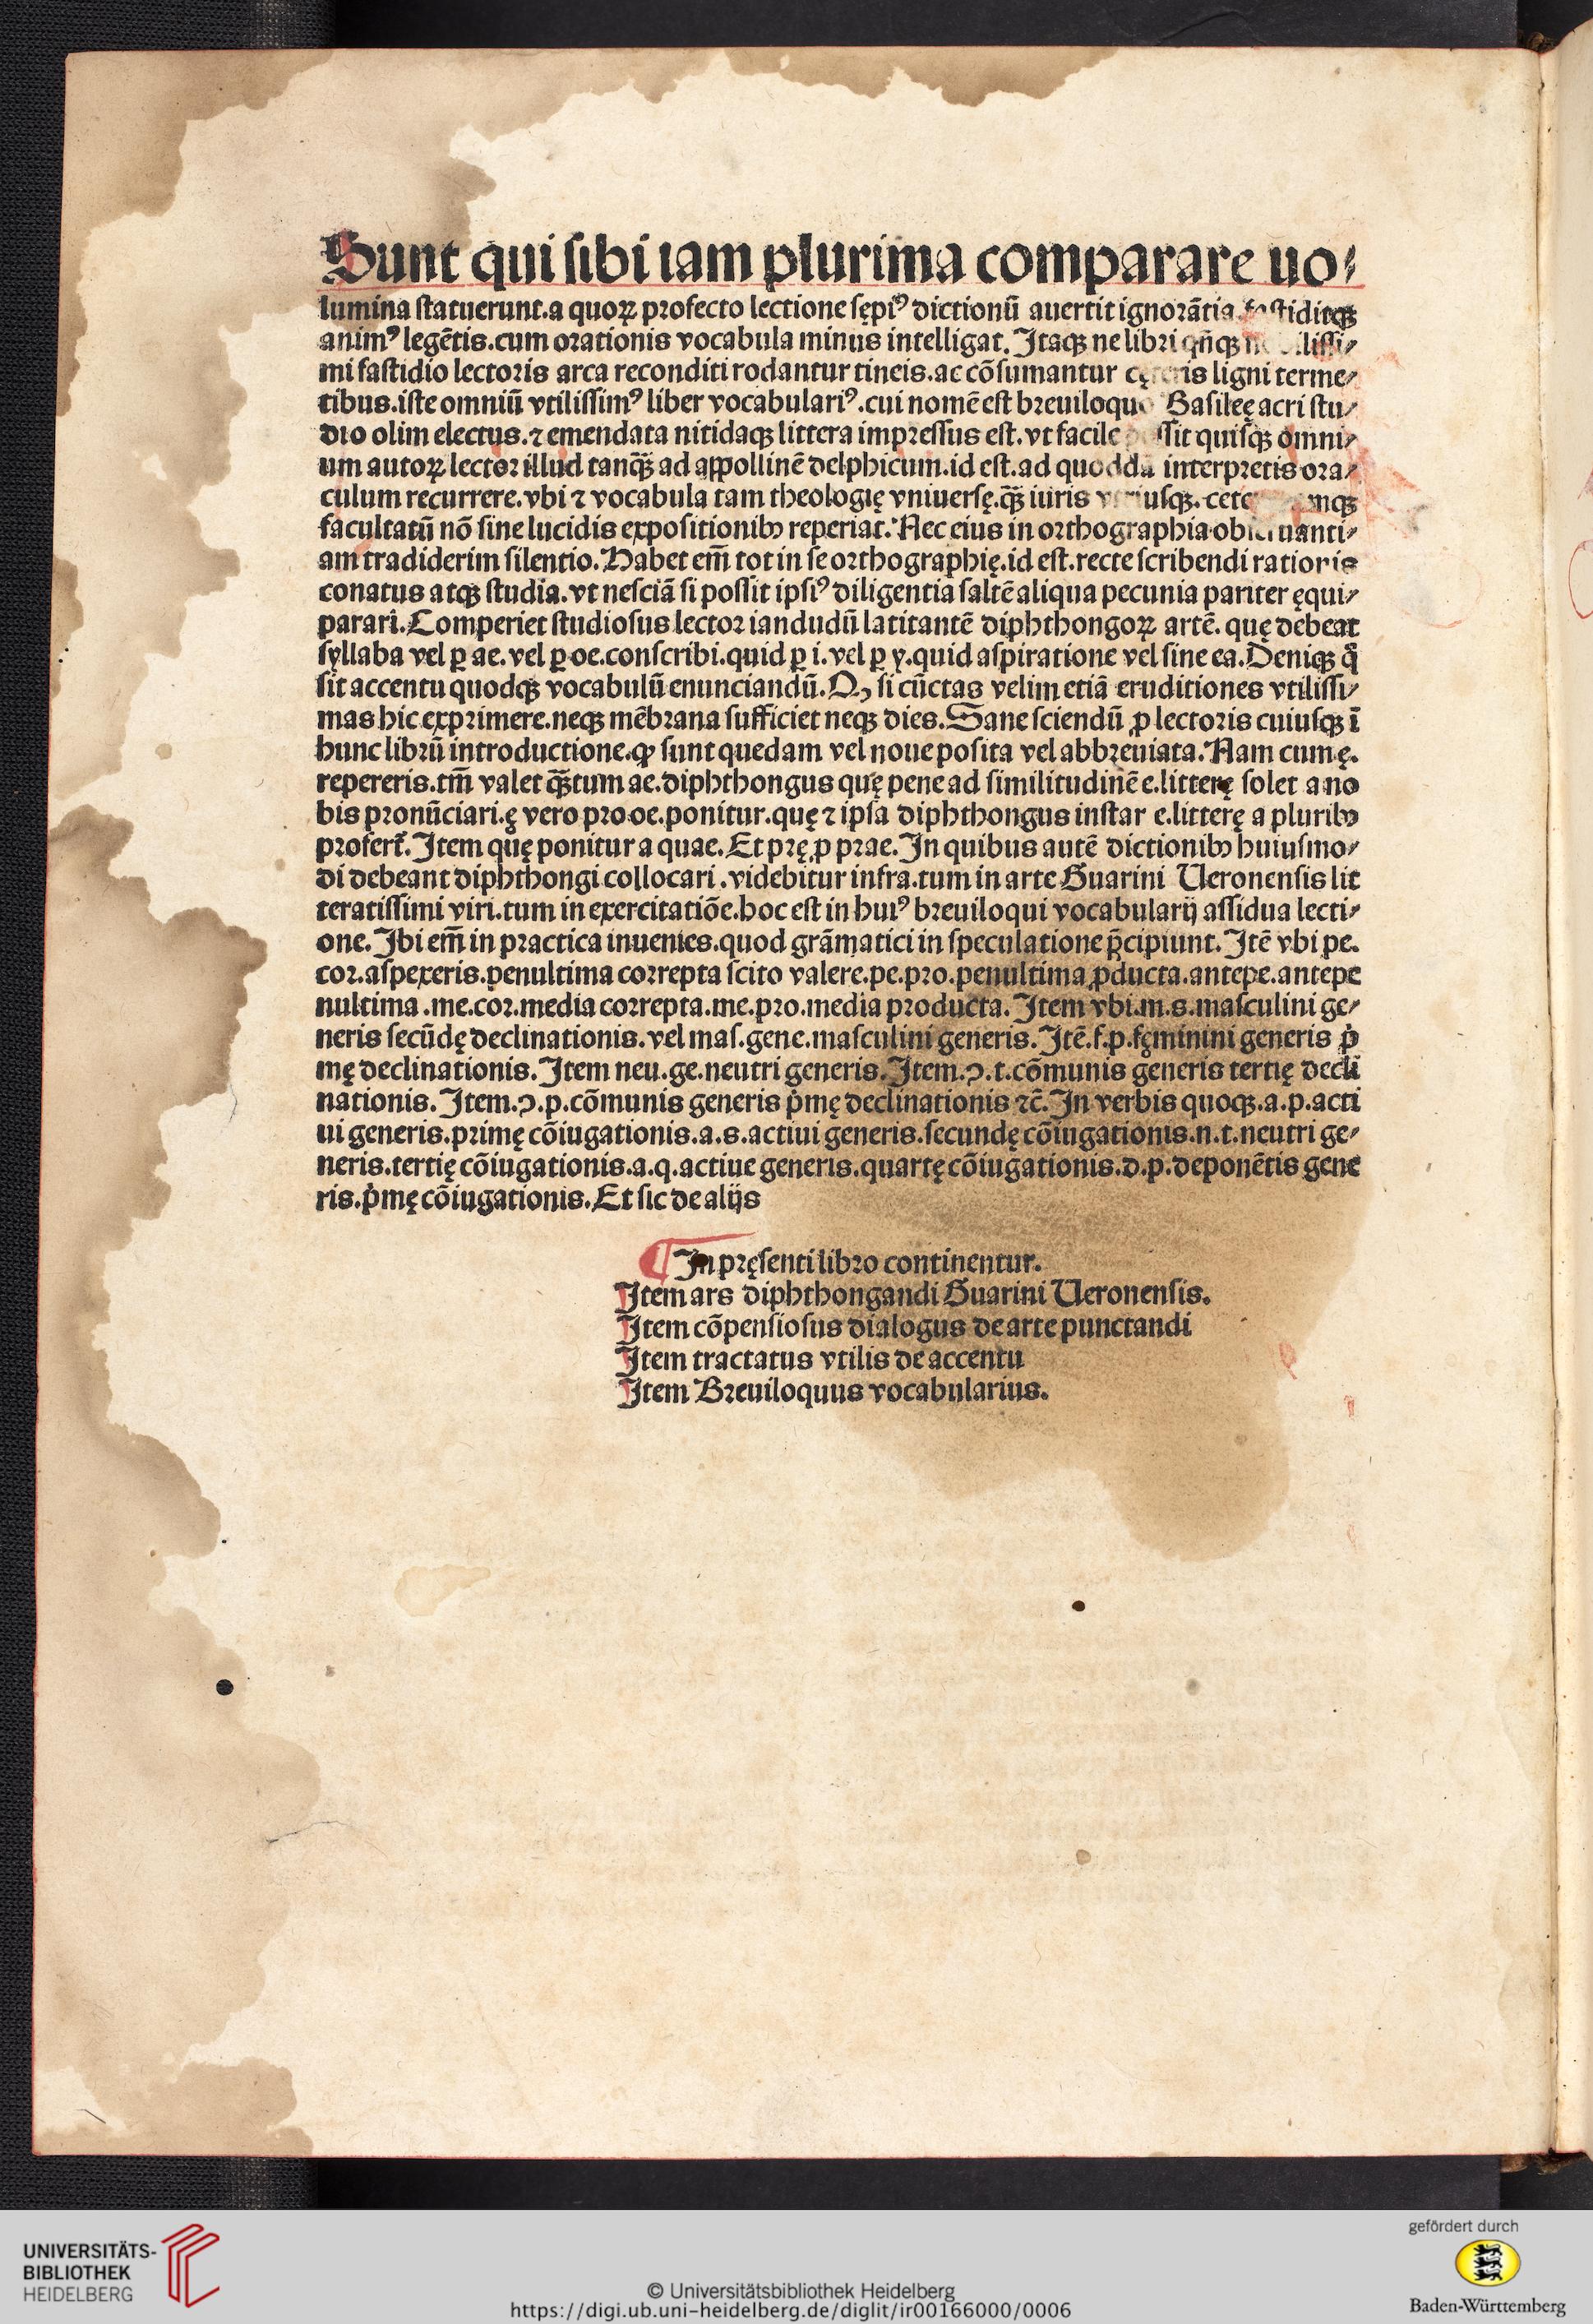 Sunt qui sibi iam plurima comparare uo⸗
lumina statuerunt.a quoꝝ profecto lectione sępiꝰ dictionū auertit ignorātia.fastiditqꝫ
animꝰ legētis.cum orationis vocabula minus intelligat. Itaqꝫ ne libri qn̄qꝫ
mi fastidio lectoris arca reconditi rodantur tineis.ac cōsumantur ligni terme⸗
tibus.iste omniū vtilissimꝰ liber vocabulariꝰ.cui nomē est breuiloquo Basileę acri stu⸗
dio olim electus.⁊ emendata nitidaqꝫ littera impressus est.vt facile possit quisqꝫ omni⸗
um autoꝝ lector illud tanqꝫ̄ ad appollinē delphicum.id est.ad quoddā interpretis ora⸗
culum recurrere.vbi ⁊ vocabula tam theologię vniuersę.qꝫ̄ iuris
facultatū nō sine lucidis expositionibꝰ reperiat. Nec eius in orthographia
am tradiderim silentio. Habet em̄ tot in se orthographię.id est.recte scribendi rationis
conatus atqꝫ studia.vt nesciā si possit ipsiꝰ diligentia saltē aliqua pecunia pariter ęqui⸗
parari. Comperiet studiosus lector iandudū latitantē diphthongoꝝ artē. quę debeat
syllaba vel ꝑ ae.vel ꝑ oe.conscribi.quid ꝑ i.vel ꝑ y.quid aspiratione vel sine ea. Deniqꝫ q̄
sit accentu quodqꝫ vocabulū enunciandū. Qꝫ si cūctas velim etiā eruditiones vtilissi⸗
mas hic exprimere.neqꝫ mēbrana sufficiet neqꝫ dies. Sane sciendū ꝓ lectoris cuiusqꝫ ī
hunc librū introductione.ꝙ sunt quedam vel noue posita vel abbreuiata. Nam cum ę.
repereris.tm̄ valet qꝫ̄tum ae.diphthongus quę pene ad similitudinē e.litterę solet a no
bis pronūciari.ę vero pro oe.ponitur.quę ⁊ ipsa diphthongus instar e.litterę a pluribꝰ
profert᷑. Item quę ponitur a quae. Et prę ꝓ prae. In quibus autē dictionibꝰ huiusmo⸗
di debeant diphthongi collocari.videbitur infra.tum in arte Guarini Veronensis lit
teratissimi viri.tum in exercitatiōe.hoc est in huiꝰ breuiloqui vocabularij assidua lecti⸗
one. Ibi em̄ in practica inuenies.quod grāmatici in speculatione p̄cipiunt. Itē vbi pe.
cor.aspexeris.penultima correpta scito valere.pe.pro.penultima ꝓducta.antepe.antepe
nultima.me.cor.media correpta.me.pro.media producta. Item vbi.m.s.masculini ge⸗
neris secūdę declinationis.vel mas.gene.masculini generis. Itē.f.p.fęminini generis p̍
mę declinationis. Item neu.ge.neutri generis. Item.ↄ.t.cōmunis generis tertię decli
nationis. Item.ↄ.p.cōmunis generis p̍mę declinationis ⁊c̄. In verbis quoqꝫ.a.p.acti
ui generis.primę cōiugationis.a.s.actiui generis.secundę cōiugationis.n.t.neutri ge⸗
neris.tertię cōiugationis.a.q.actiue generis.quartę cōiugationis.d.p.deponētis gene
ris.p̍mę cōiugationis. Et sic de alijs
¶ In pręsenti libro continentur.
Item ars diphthongandi Guarini Veronensis.
Item cōpensiosus dialogus de arte punctandi
Item tractatus vtilis de accentu
Item Breuiloquus vocabularius.
UNIVERSITÄTS-
BIBLIOTHEK
HEIDELBERG
© Universitätsbibliothek Heidelberg
https://digi.ub.uni-heidelberg.de/diglit/ir00166000/0006
gefördert durch
Baden-Württemberg